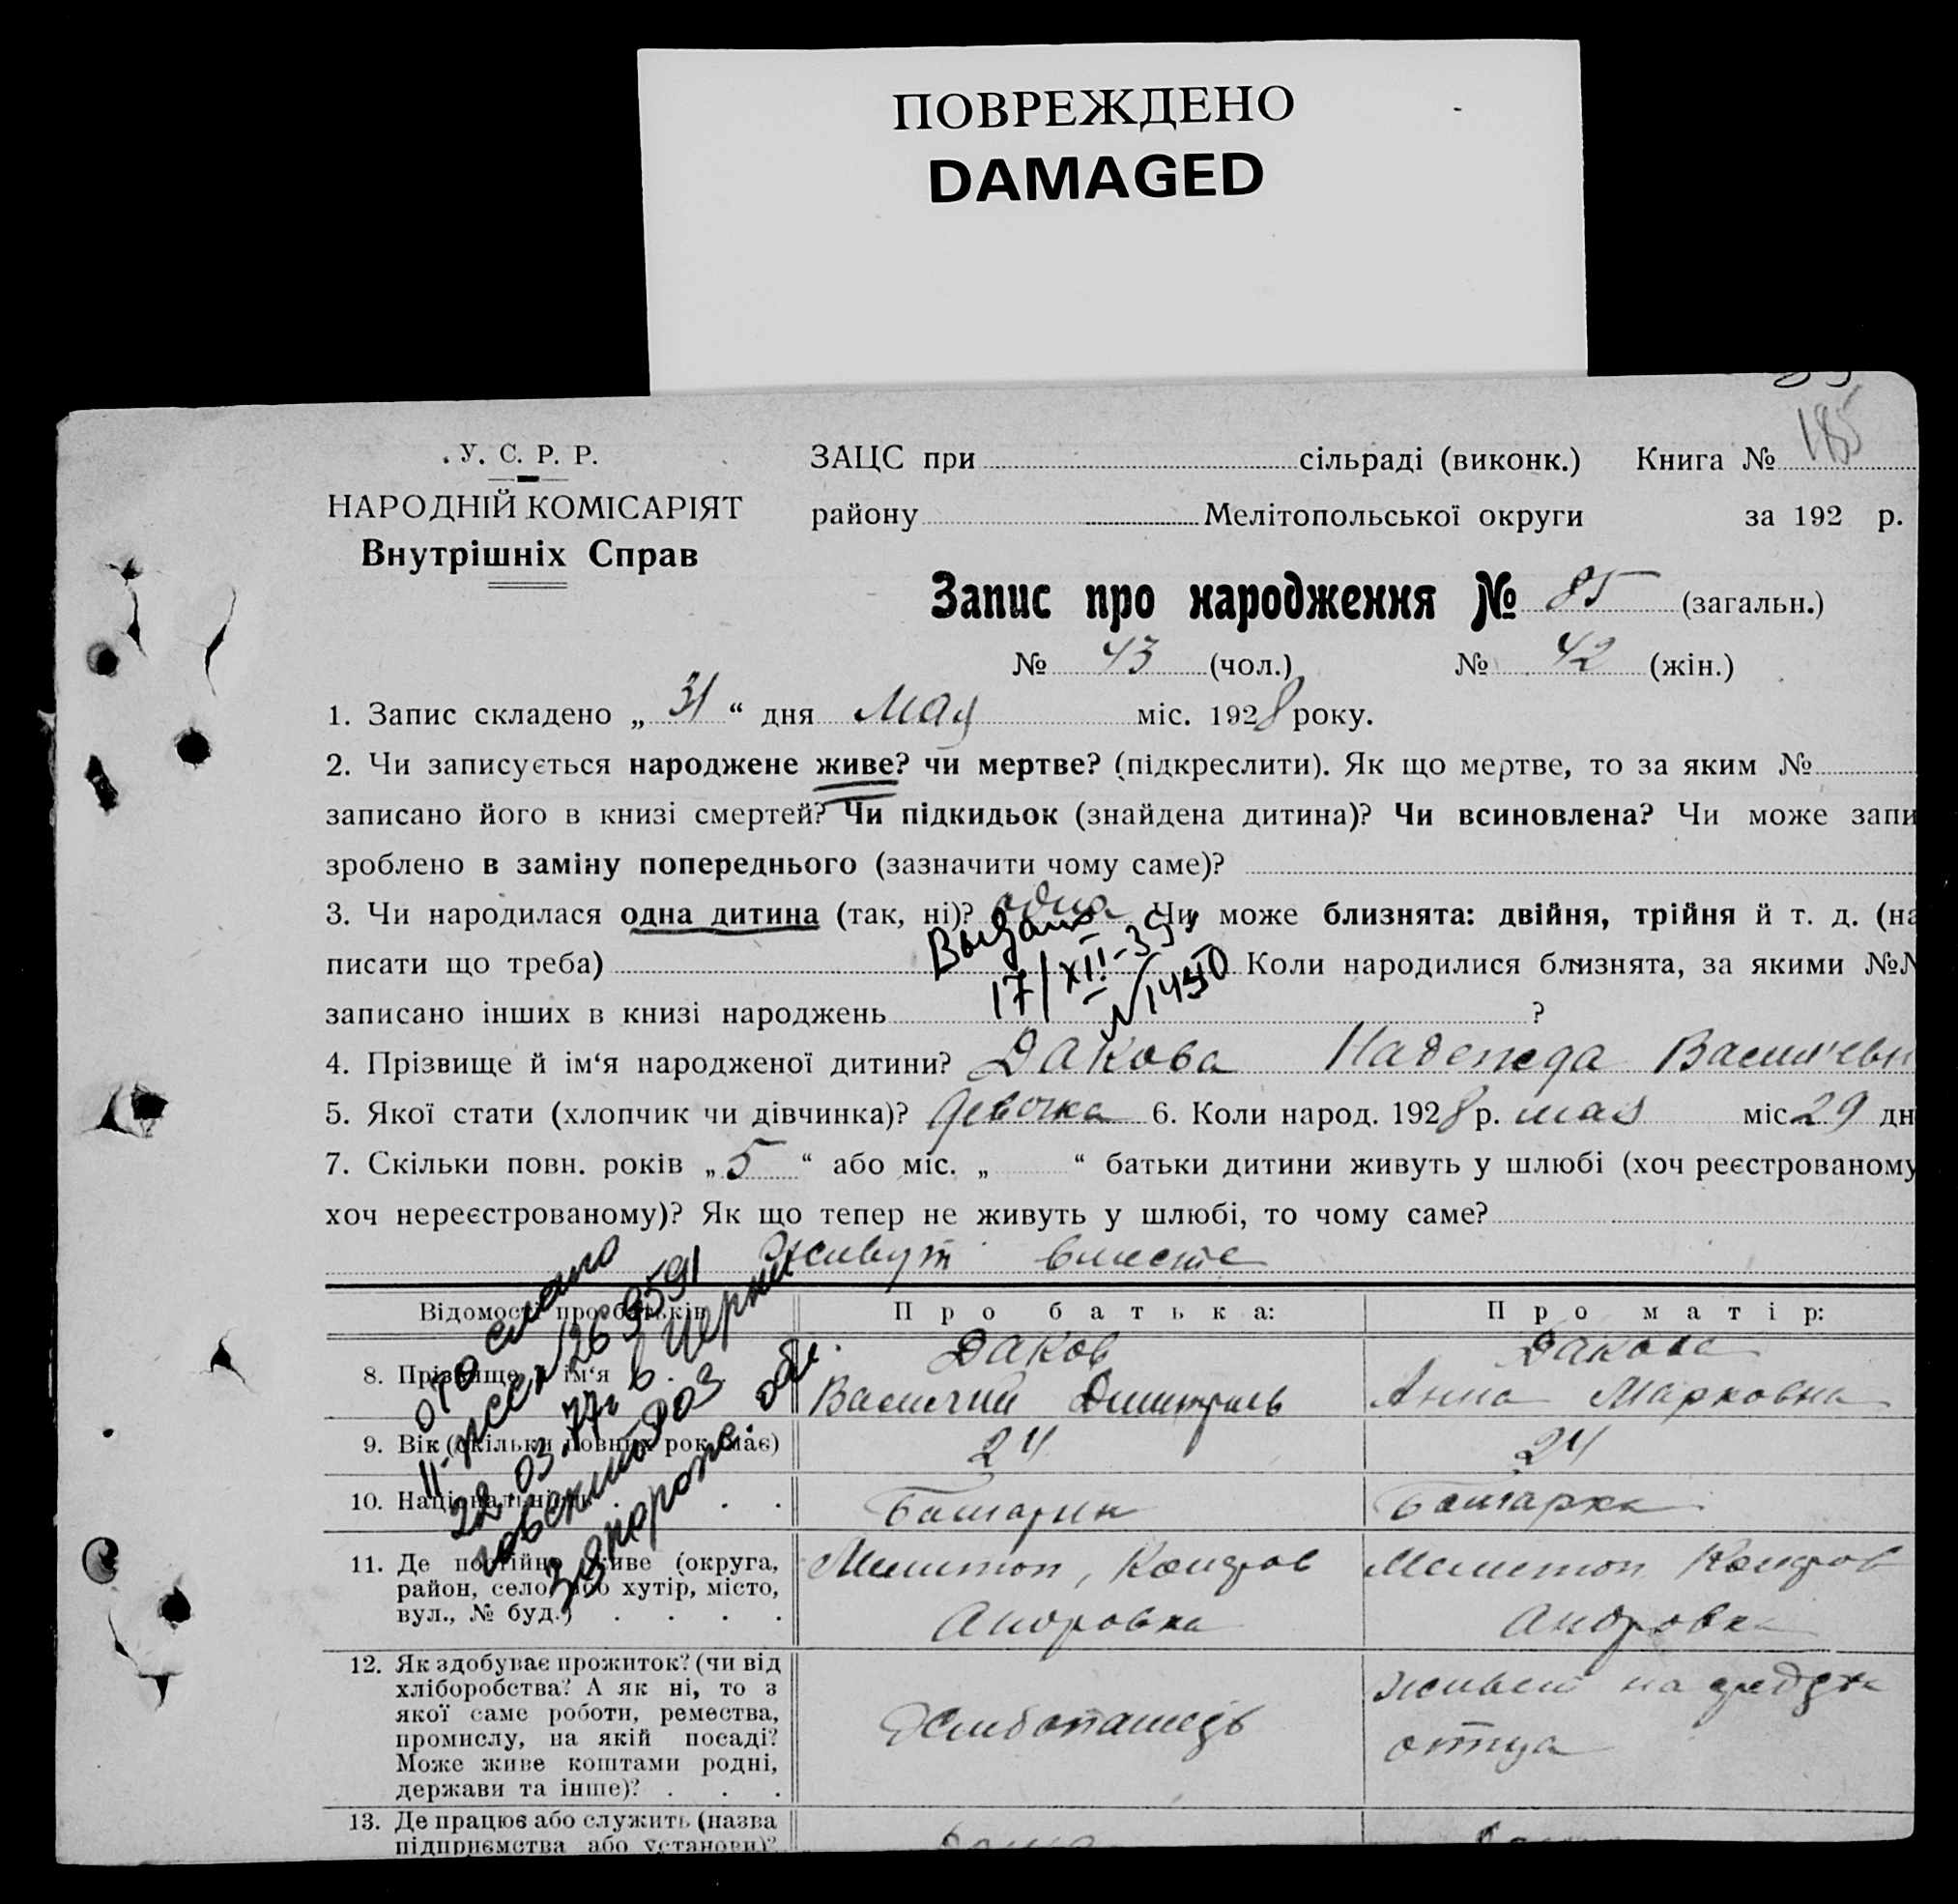 ПОВРЕЖДЕНО
DAMAGED
185
У. С. Р. Р.
НАРОДНІЙ КОМІСАРІЯТ
Внутрішніх Справ
ЗАЦС при сільраді (виконк.) Книга №
району Мелітопольської округи за 192 р.
Запис про народження № 85 (загальн.)
№ 43 (чол.) № 42 (жін.)
1. Запис складено „ 31 “ дня Мая міс. 1928 року.
2. Чи записується народжене живе? чи мертве? (підкреслити). Як що мертве, то за яким №
записано його в книзі смертей? Чи підкидьок (знайдена дитина)? Чи всиновлена? Чи може запи
зроблено в заміну попереднього (зазначити чому саме)?
3. Чи народилася одна дитина (так, ні)? одна Чи може близнята: двійня, трійня й т. д. (на
писати що треба) Коли народилися близнята, за якими №№
записано інших в книзі народжень ?
Выдано
17/XII-35
№1450
4. Прізвище й ім‘я народженої дитини? Дакова Надежда Васильевн
5. Якої стати (хлопчик чи дівчинка)? девочка 6. Коли народ. 1928 р. мая міс 29 дн
7. Скільки повн. років „ 5 “ або міс. „ “ батьки дитини живуть у шлюбі (хоч реєстрованому
хоч нереєстрованому)? Як що тепер не живуть у шлюбі, то чому саме?
живут вместе
Відомості про батьків Про батька: Про матір:
8. Прізвище й ім‘я . . .
Даков
Василий Дмитриев
Дакова
Анна Марковна
9. Вік (скільки повних рок. має) 24 24
10. Національність . . . Болгарин Болгарка
11. Де постійно живе (округа,
район, село або хутір, місто,
вул., № буд.) . . . .
Мелитоп,
Андровка
Мелитоп
Андровка
12. Як здобуває прожиток? (чи від
хліборобства? А як ні, то з
якої саме роботи, ремества,
промислу, на якій посаді?
Може живе коштами родні,
держави та інше)? . . .
Хлибопашедь
живет на
отца
13. Де працює або служить (назва
підприємства або установи)?
отослано
22.03.77г в
Запорож. обл.